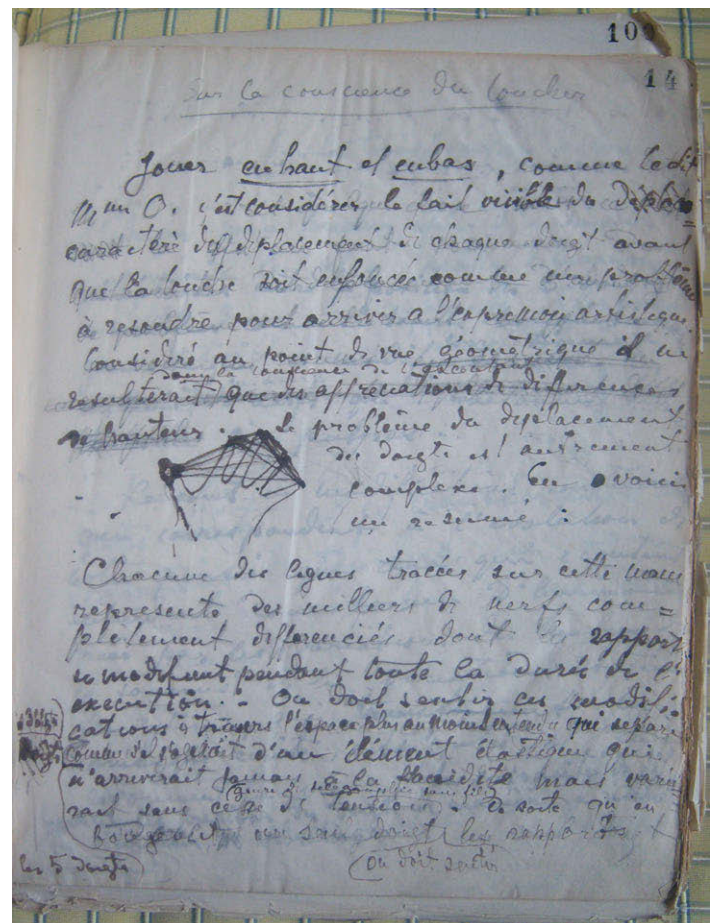 109
14
Sur la conscience du toucher
Jouer en haut et en bas, comme le dit
Mme O. c'est considérer le fait visible du
caractère du déplacement de chaque doigt avant
que la touche soit enfoncée comme un problème
à resoudre pour arriver a l'expression artistique.
Considéré au point de vue géométrique il ne
dans la conscience de l'executant
resulterait que des appréciations de differences
de hauteur. Le problème du deplacement
des doigts est autrement
complexe. En voici
un resumé :
Chacune des lignes tracées sur cette main
represente des milliers de nerfs com=
plètement differenciés dont les rapports
se modifient pendant toute la durée de l'
execution. - On doit sentir ces modifi
cations à travers l'espace plus ou moins etendu qui separe
comme s'il s'agissait d'un élément élastique qui
n'arriverait jamais à la flaccidité mais varie
rait sans cesse de tension. De sorte qu'en
bougeant un seul doigt les rapports
les 5 doigts
on doit sentir